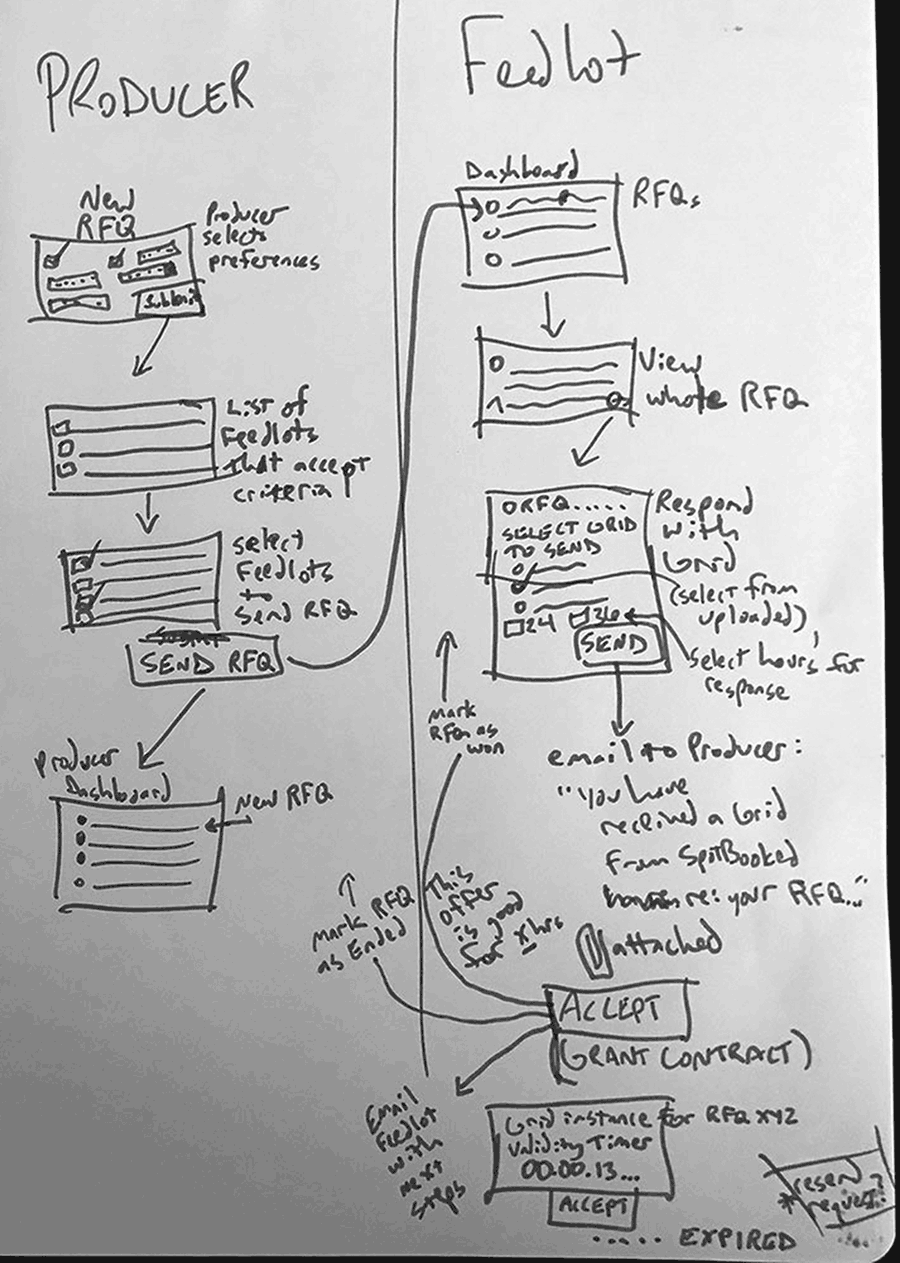 PRODUCER
New
RFQ
Producer
selects
preferences
Submit
List of
Feedlots
that accept
criteria
select
Feedlots
to
Send RFQ
SEND RFQ
Producer
Dashboard
New RFQ
mark RFQ
as Ended
Feedlot
Dashboard
RFQs
View
whole RFQ
RFQ.....
SELECT GRID
TO SEND
24
36
SEND
Respond
with
Grid
(select from
uploaded)
select hours for
response
mark
RFQ as
won
email to Producer:
"You have
received a Grid
from SpotBooked
re: your RFQ..."
attached
This
offer
is good
for x hrs
ACCEPT
(GRANT CONTRACT)
Email
Feedlot
with
next
steps
Grid instance for RFQ XYZ
Validity Timer
00.00.13...
ACCEPT
..... EXPIRED
* resend
request?